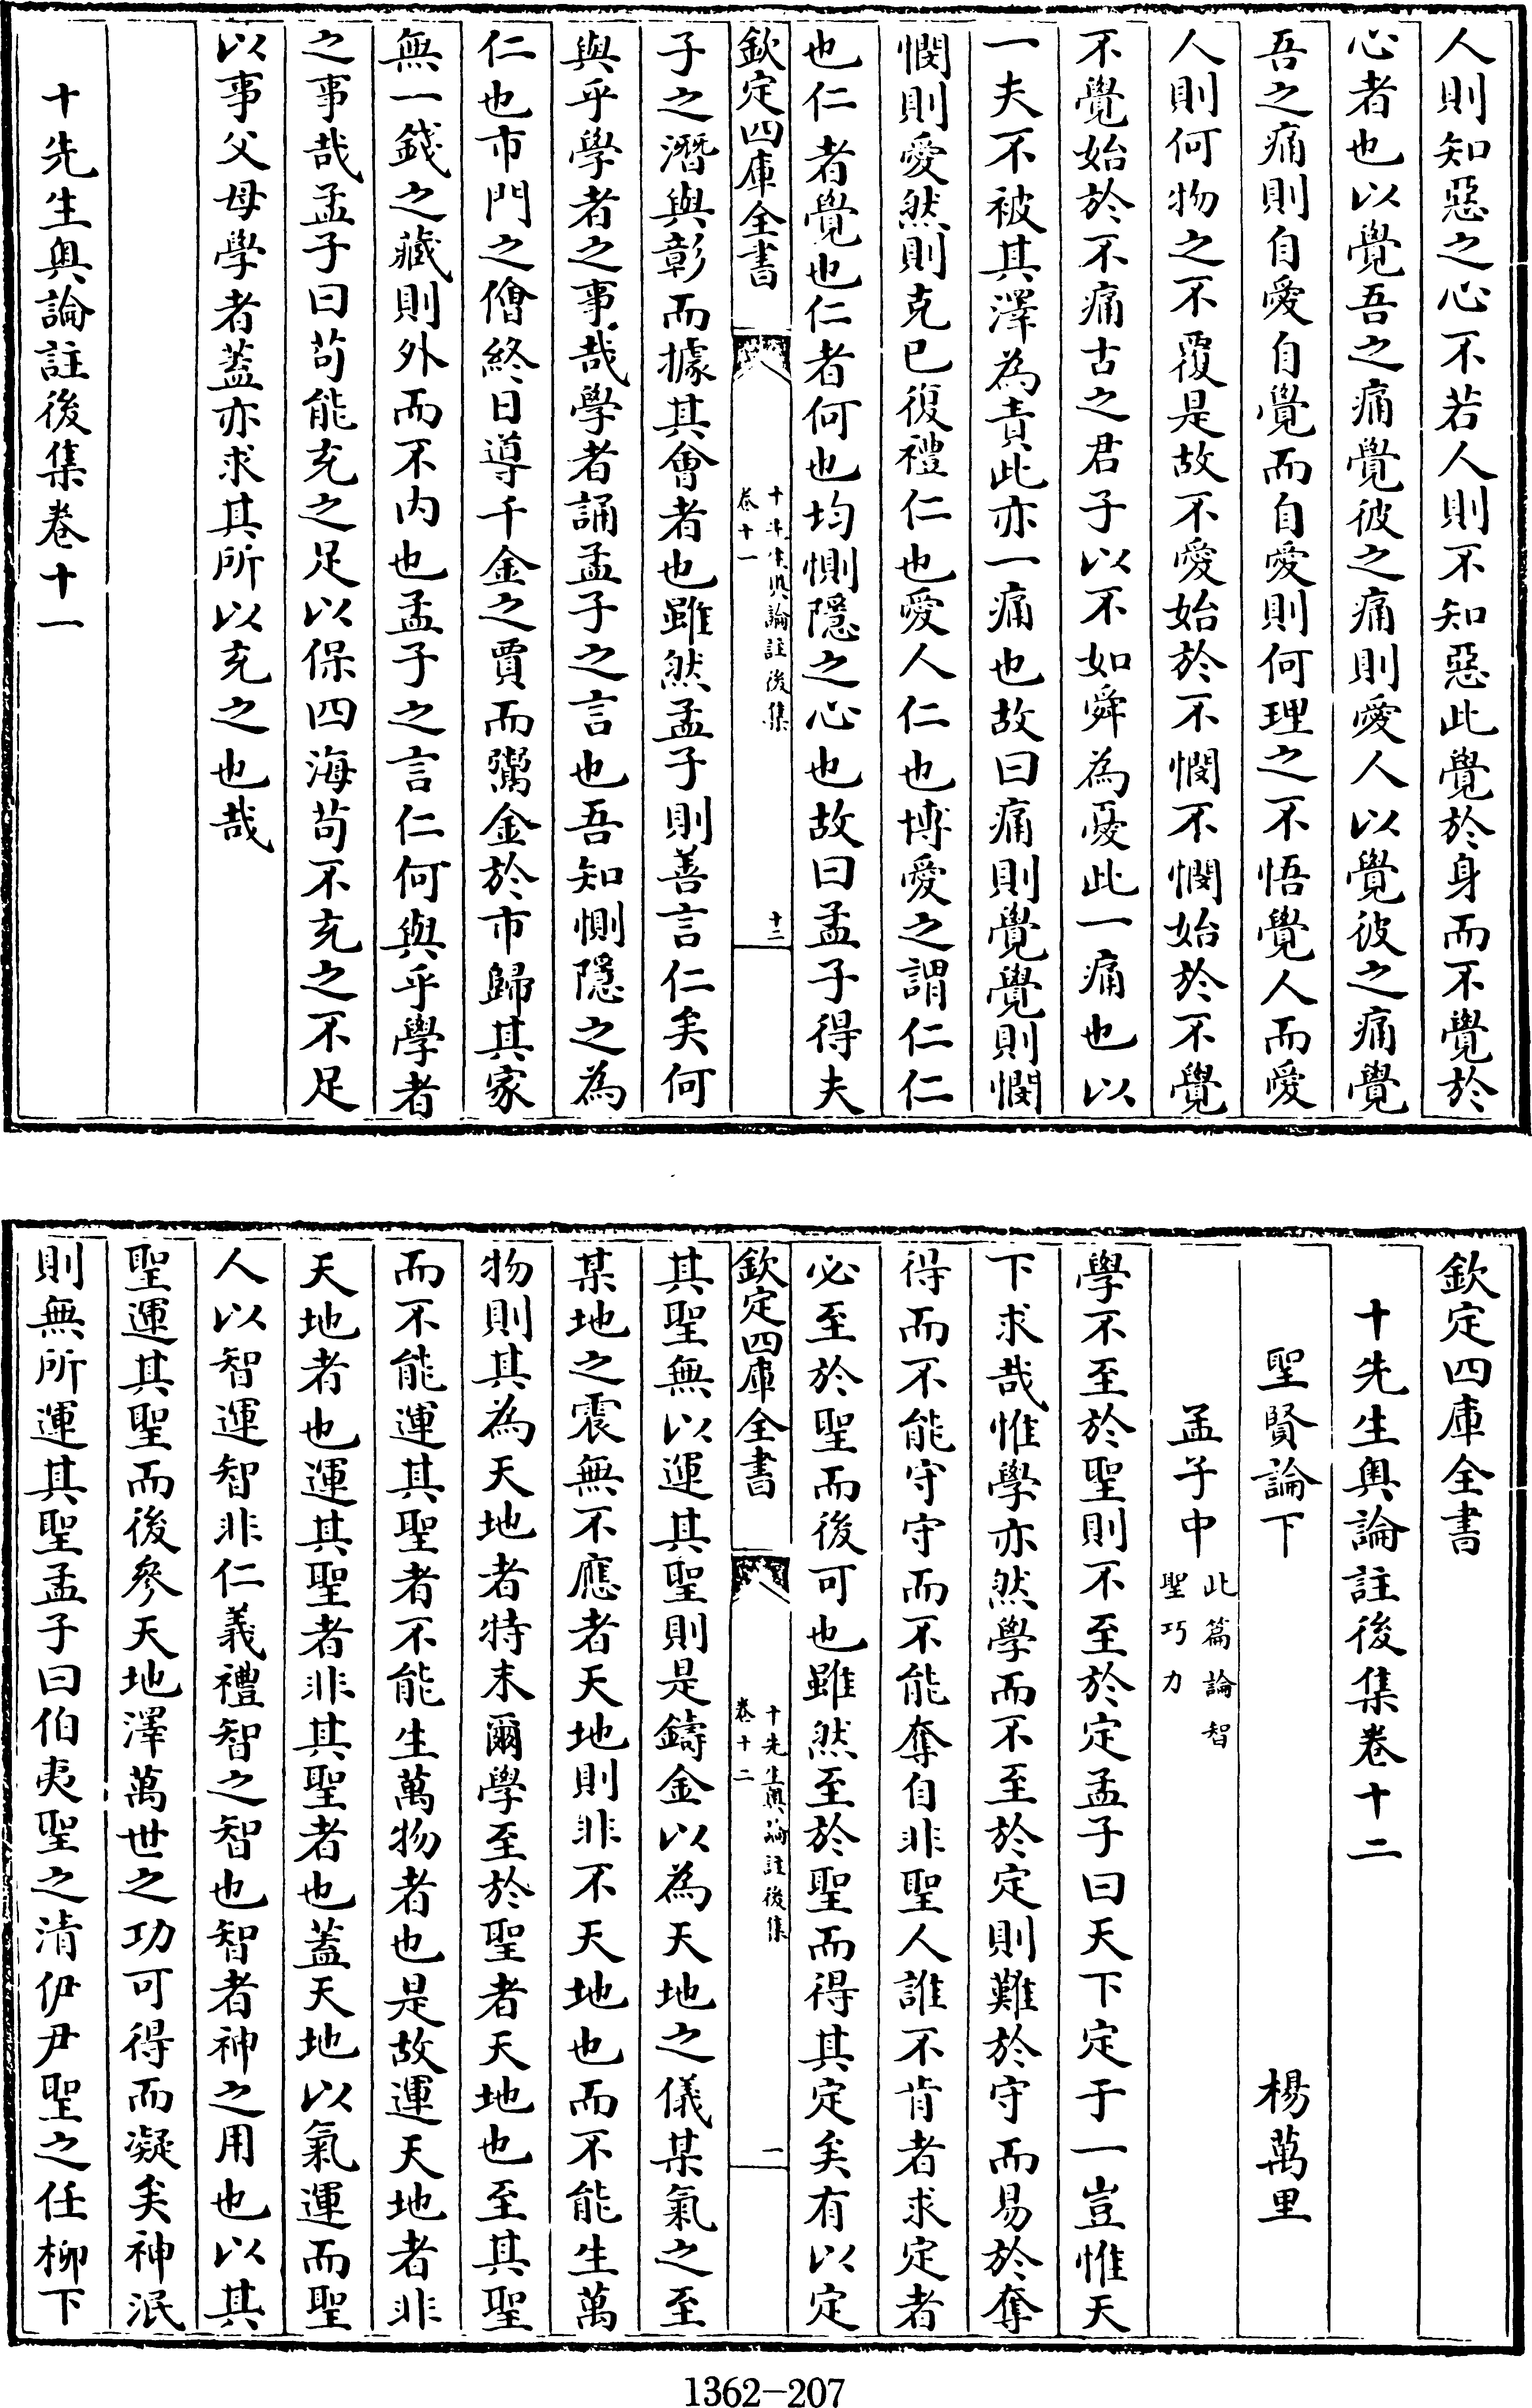 人則知惡之心不若人則不知惡此覺於身而不覺於
心者也以覺吾之痛覺彼之痛則愛人以覺彼之痛覺
吾之痛則自愛自覺而自愛則何理之不悟覺人而愛
人則何物之不覆是故不愛始於不憫不憫始於不覺
不覺始於不痛古之君子以不如舜為憂此一痛也以
一夫不被其澤為責此亦一痛也故曰痛則覺覺則憫
憫則愛然則克已復禮仁也愛人仁也博愛之謂仁仁
也仁者覺也仁者何也均惻隱之心也故曰孟子得夫
欽定四庫全書
十先生奥論註後集
卷十一
十二
子之潛與彰而據其會者也雖然孟子則善言仁矣何
與乎學者之事哉學者誦孟子之言也吾知惻隱之為
仁也市門之儈終日導千金之賈而鬻金於市歸其家
無一錢之藏則外而不内也孟子之言仁何與乎學者
之事哉孟子曰茍能充之足以保四海茍不充之不足
以事父母學者蓋亦求其所以充之也哉
十先生奥論註後集卷十一
欽定四庫全書
十先生奥論註後集卷十二
聖賢論下 楊萬里
孟子中 此篇論智
聖巧力
學不至於聖則不至於定孟子曰天下定于一豈惟天
下求哉惟學亦然學而不至於定則難於守而易於奪
得而不能守守而不能奪自非聖人誰不肯者求定者
必至於聖而後可也雖然至於聖而得其定矣有以定
欽定四庫全書
十先生奥論註後集
卷十二
一
其聖無以運其聖則是鑄金以為天地之儀某氣之至
某地之震無不應者天地則非不天地也而不能生萬
物則其為天地者特末爾學至於聖者天地也至其聖
而不能運其聖者不能生萬物者也是故運天地者非
天地者也運其聖者非其聖者也蓋天地以氣運而聖
人以智運智非仁義禮智之智也智者神之用也以其
聖運其聖而後參天地澤萬世之功可得而凝矣神泯
則無所運其聖孟子曰伯夷聖之清伊尹聖之任柳下
1362-207